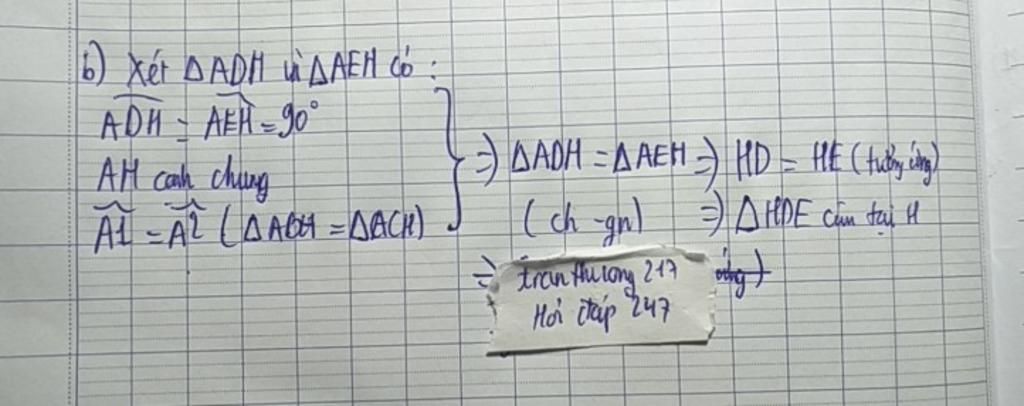 b) Xét ΔADH và ΔAEH có :
ADH = AEH = 90°
AH cạnh chung
A1 = A2 (ΔABH = ΔACH)
=> ΔADH = ΔAEH => HD = HE (tương ứng)
(ch - gn) => ΔHDE cân tại H
=> ứng)
tranthuong 217
Hỏi đáp 247